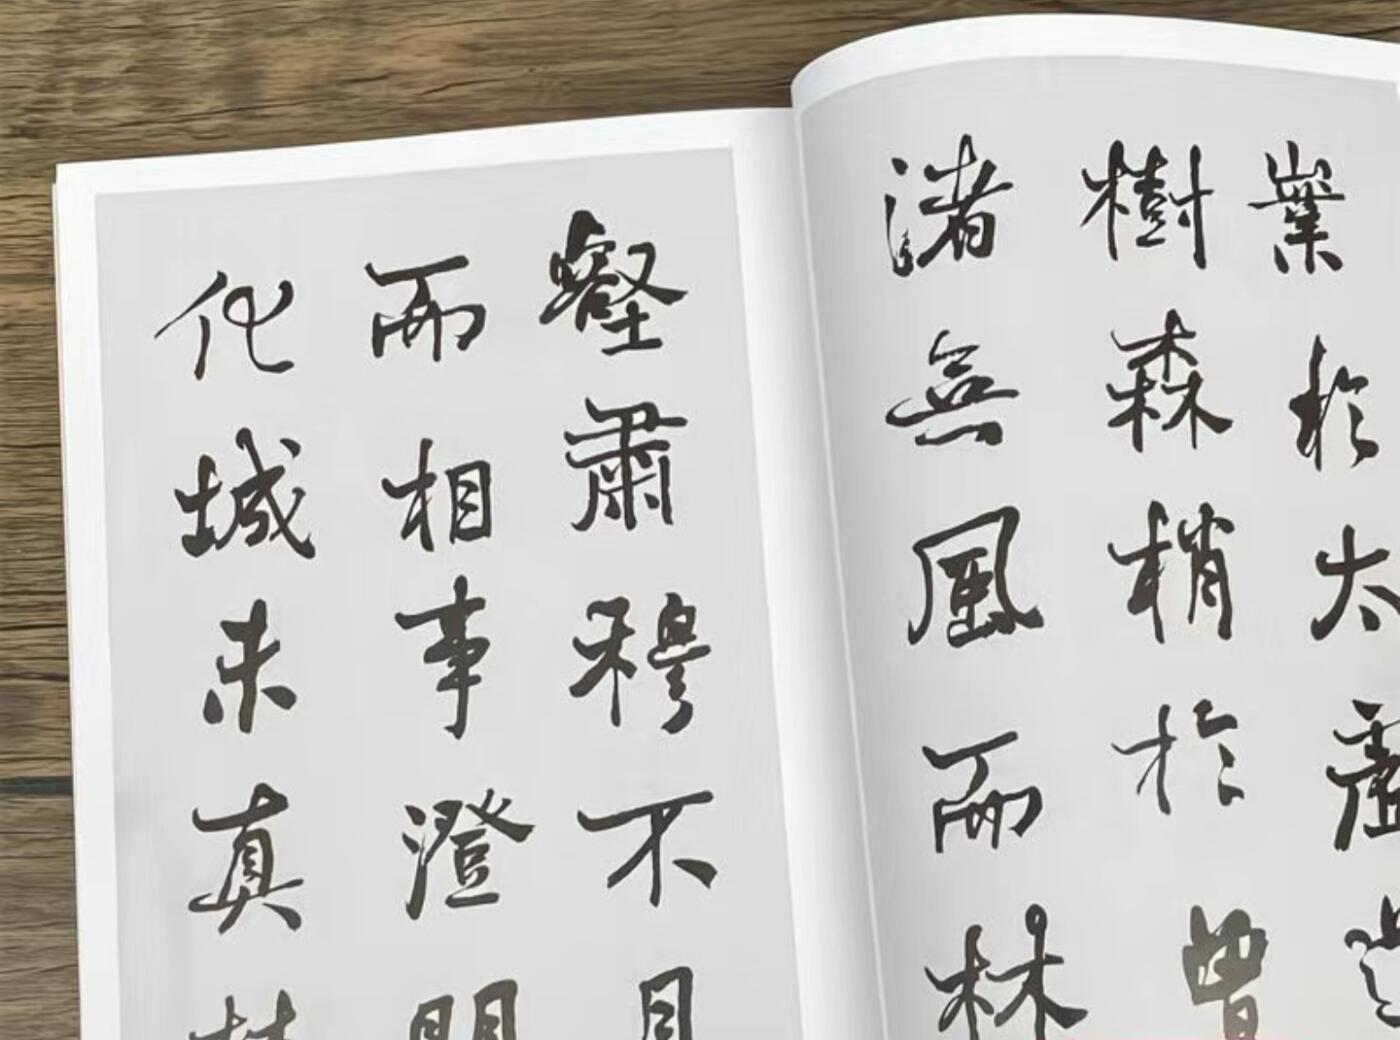 業於太虛
樹森梢於曾
渚無風而林
壑肅穆不月
而相事澄明
化城未真